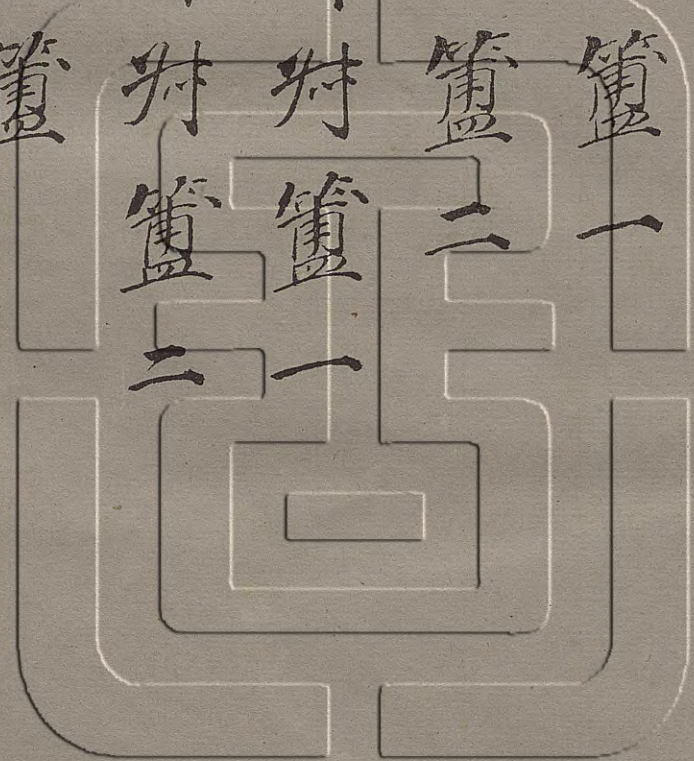 簠一
簠二
簠一
簠二
簠